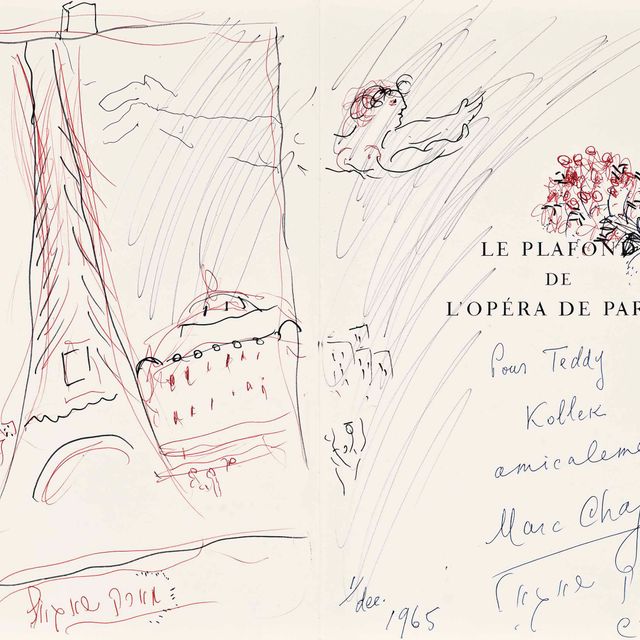 LE PLAFOND
DE
L'OPÉRA DE PAR
Pour Teddy
Kollek
amicaleme
Marc Chag
1/dec. 1965